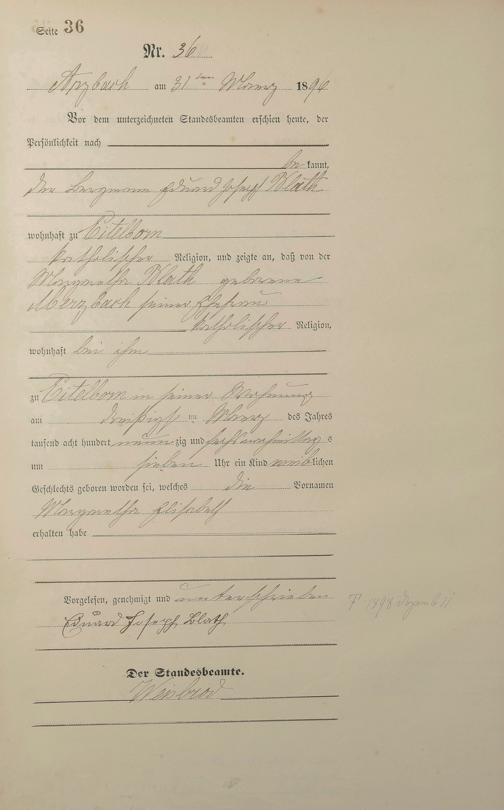 Seite 36
Nr. 36
Arzbach am 31ten Maerz 1890
Vor dem unterzeichneten Standesbeamten erschien heute, der
Persönlichkeit nach
be kannt,
der Bergmann Eduard Joseph Blath
wohnhaft zu Eitelborn
katholischer Religion, und zeigte an, daß von der
Margaretha Blath geborene
Merzbach seiner Ehefrau
katholischer Religion,
wohnhaft bei ihm
zu Eitelborn in seiner Wohnung
am dreißigst en Maerz des Jahres
tausend acht hundert neun zig und Vormittags
um sieben Uhr ein Kind weiblichen
Geschlechts geboren worden sei, welches die Vornamen
Margaretha Elisabeth
erhalten habe
Vorgelesen, genehmigt und unterschrieben
Eduard Joseph Blath
Der Standesbeamte.
Weisbrod
† 1898 Dezemb 11